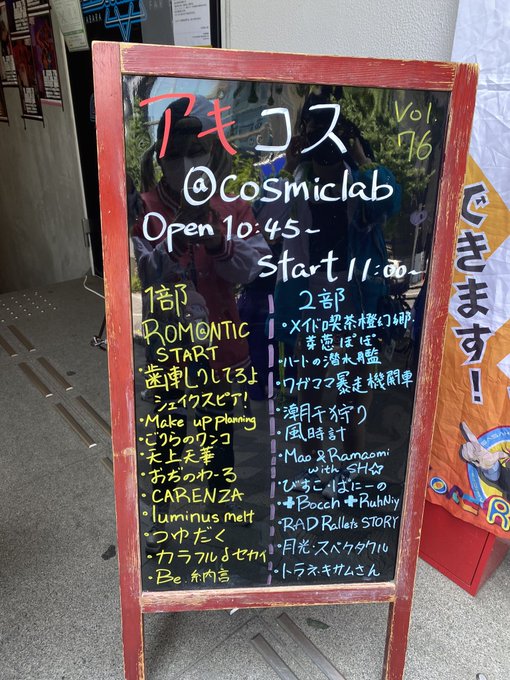 アキコス
Vol.76
@cosmiclab
Open 10:45~
Start 11:00~
1部
・ROMANTIC
START
・歯車しりしてろよ
シェイクスピア!
・Make up planning
・ごりらのワンコ
・天上天華
・おぢのわーる
・CARENZA
・luminus melt
・つゆだく
・カラフル♩セカイ
・Be.納言
2部
・メイド喫茶橙幻郷
芽葱ぽぽ
・ハートの潜水艦
・ワガママ暴走機関車
・潮干狩り
・風時計
・Mao & Ramaomi
with SH☆
・びすこ・ばにーの
・✚Bocch✚RuhNiy
・RAD Rallets STORY
・月光・スペクタクル
・トラネキサムさん
できます!